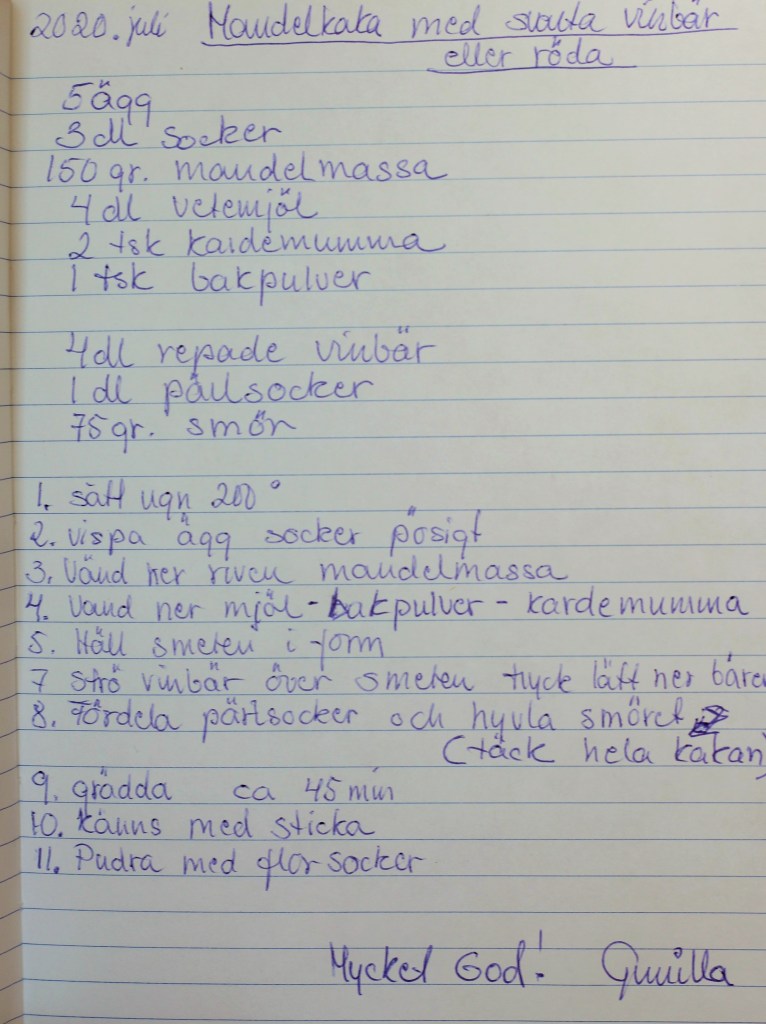 2020. juli Mandelkaka med svarta vinbär
eller röda
5 ägg
3 dl socker
150 gr. mandelmassa
4 dl vetemjöl
2 tsk kardemumma
1 tsk bakpulver
4 dl repade vinbär
1 dl pärlsocker
75 gr. smör
1. sätt ugn 200°
2. vispa ägg socker pösigt
3. Vänd ner riven mandelmassa
4. Vänd ner mjöl - bakpulver - kardemumma
5. Häll smeten i form
7 strö vinbär över smeten tryck lätt ner bären
8. Fördela pärlsocker och hyvla smöret
(täck hela kakan)
9. grädda ca 45 min
10. Känns med sticka
11. Pudra med florsocker
Mycket God! Gunilla